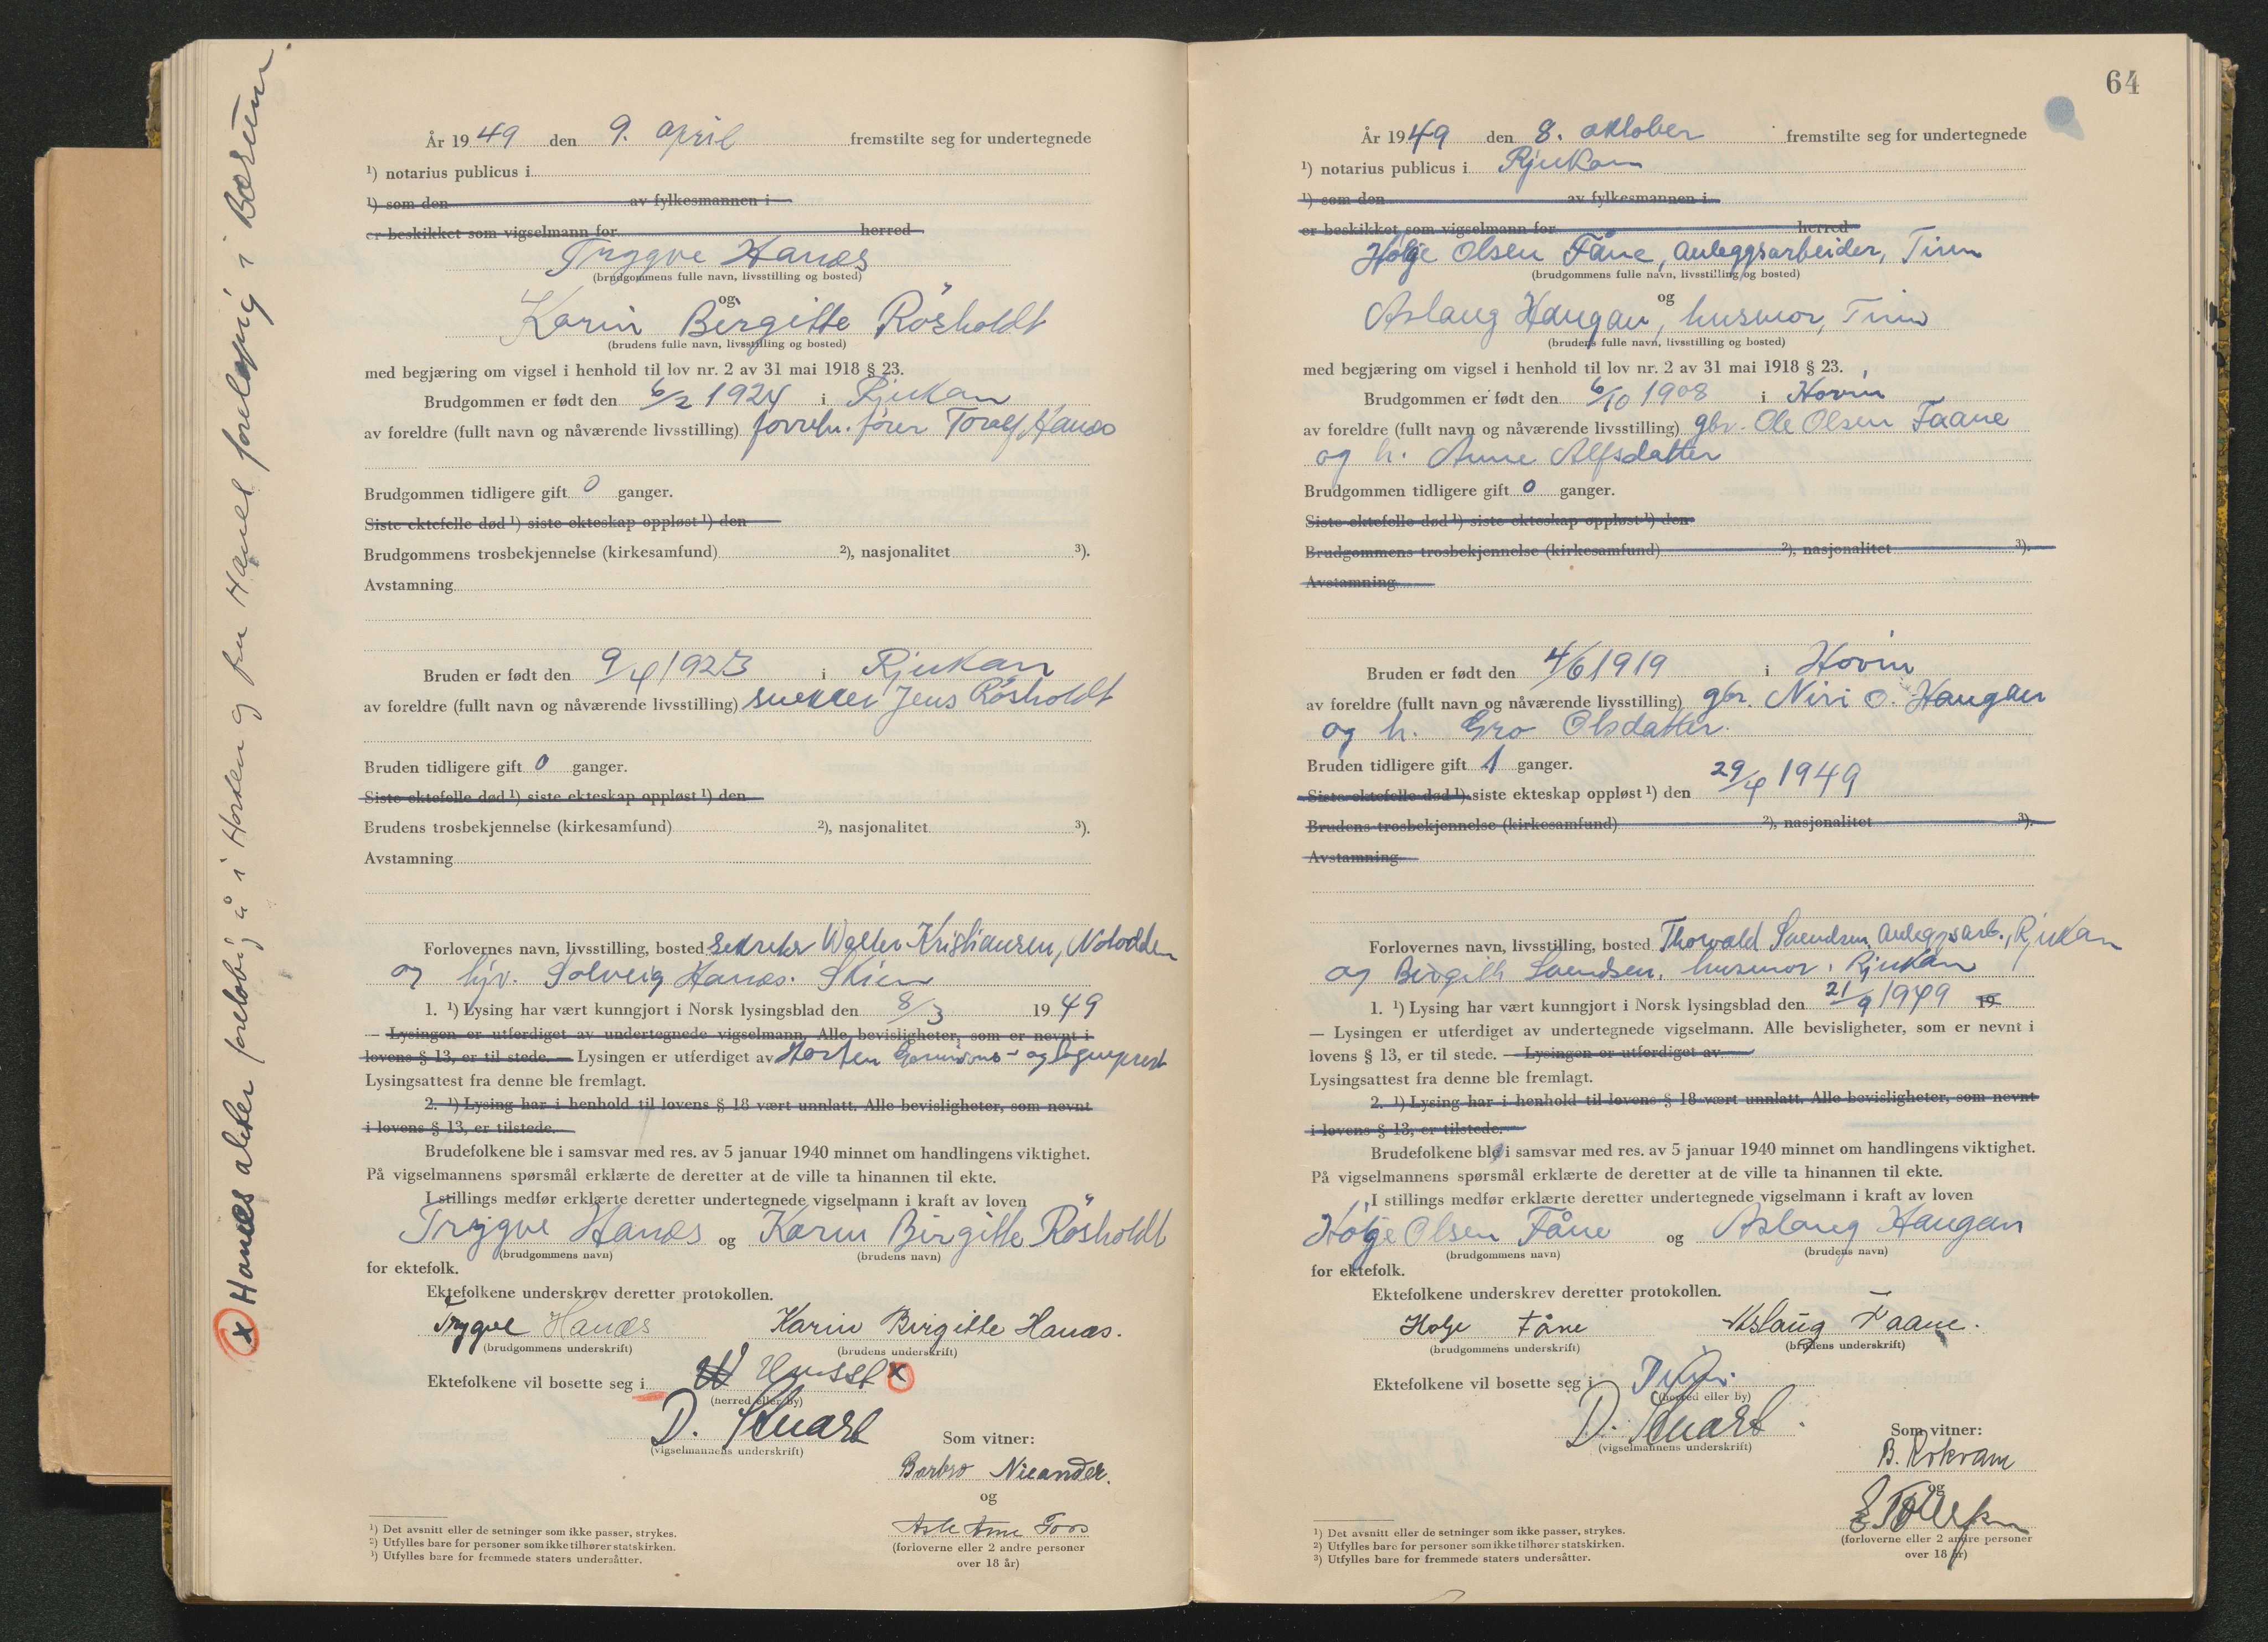 År 1949 den 9. april fremstilte seg for undertegnede
¹) notarius publicus i
¹) som den av fylkesmannen i
er beskikket som vigselmann for herred
Trygve Hanæs
(brudgommens fulle navn, livsstilling og bosted)
og
Karin Birgitte Rösholdt
(brudens fulle navn, livsstilling og bosted)
med begjæring om vigsel i henhold til lov nr. 2 av 31 mai 1918 § 23.
Brudgommen er født den 6/2 1924 i Rjukan
av foreldre (fullt navn og nåværende livsstilling) forretn. fører Toralf Hanæs
Brudgommen tidligere gift 0 ganger.
Siste ektefelle død ¹) siste ekteskap oppløst ¹) den
Brudgommens trosbekjennelse (kirkesamfund) ²), nasjonalitet ³).
Avstamning
Bruden er født den 9/4 1923 i Rjukan
av foreldre (fullt navn og nåværende livsstilling) snekker Jens Rösholdt
Bruden tidligere gift 0 ganger.
Siste ektefelle død ¹) siste ekteskap oppløst ¹) den
Brudens trosbekjennelse (kirkesamfund) ²), nasjonalitet ³).
Avstamning
Forlovernes navn, livsstilling, bosted sekretær Walter Kristiansen, Notodden
og hjv. Solveig Hanæs. Skien
1. ¹) Lysing har vært kunngjort i Norsk lysingsblad den 8/3 1949
— Lysingen er utferdiget av undertegnede vigselmann. Alle bevisligheter, som er nevnt i
lovens § 13, er til stede. — Lysingen er utferdiget av Horten Garnisons- og sogneprest
Lysingsattest fra denne ble fremlagt.
2. ¹) Lysing har i henhold til lovens § 18 vært unnlatt. Alle bevisligheter, som nevnt
i lovens § 13, er tilstede.
Brudefolkene ble i samsvar med res. av 5 januar 1940 minnet om handlingens viktighet.
På vigselmannens spørsmål erklærte de deretter at de ville ta hinannen til ekte.
I stillings medfør erklærte deretter undertegnede vigselmann i kraft av loven
Trygve Hanæs og Karin Birgitte Rösholdt
(brudgommens navn) (brudens navn)
for ektefolk.
Ektefolkene underskrev deretter protokollen.
Trygve Hanæs Karin Birgitte Hanæs.
(brudgommens underskrift) (brudens underskrift)
Ektefolkene vil bosette seg i x
(herred eller by)
D. Stuart
(vigselmannens underskrift)
Som vitner:
Barbro Nicander.
og
(forloverne eller 2 andre personer
over 18 år)
¹) Det avsnitt eller de setninger som ikke passer, strykes.
²) Utfylles bare for personer som ikke tilhører statskirken.
³) Utfylles bare for fremmede staters undersåtter.
x Hanæs akter foreløbig å i Horten og fru Hanæs foreløpig i Bærum.
64
År 1949 den 8. oktober fremstilte seg for undertegnede
¹) notarius publicus i Rjukan
¹) som den av fylkesmannen i
er beskikket som vigselmann for herred
Holje Olsen Fåne, Anleggsarbeider, Tinn
(brudgommens fulle navn, livsstilling og bosted)
og
Aslaug Haugan, husmor, Tinn
(brudens fulle navn, livsstilling og bosted)
med begjæring om vigsel i henhold til lov nr. 2 av 31 mai 1918 § 23.
Brudgommen er født den 6/10 1908 i Hovin
av foreldre (fullt navn og nåværende livsstilling) gbr. Ole Olsen Faane
og h. Anne Alfsdatter
Brudgommen tidligere gift 0 ganger.
Siste ektefelle død ¹) siste ekteskap oppløst ¹) den
Brudgommens trosbekjennelse (kirkesamfund) ²), nasjonalitet ³).
Avstamning
Bruden er født den 4/6 1919 i Hovin
av foreldre (fullt navn og nåværende livsstilling) gbr. Niri O. Haugan
og h. Gro Olsdatter.
Bruden tidligere gift 1 ganger.
Siste ektefelle død ¹) siste ekteskap oppløst ¹) den 29/4 1949
Brudens trosbekjennelse (kirkesamfund) ²), nasjonalitet ³).
Avstamning
Forlovernes navn, livsstilling, bosted Thorvald Svendsen, Anleggsarb., Rjukan
og Birgith Svendsen, husmor, Rjukan
1. ¹) Lysing har vært kunngjort i Norsk lysingsblad den 21/9 1949 19
— Lysingen er utferdiget av undertegnede vigselmann. Alle bevisligheter, som er nevnt i
lovens § 13, er til stede. — Lysingen er utferdiget av
Lysingsattest fra denne ble fremlagt.
2. ¹) Lysing har i henhold til lovens § 18 vært unnlatt. Alle bevisligheter, som nevnt
i lovens § 13, er tilstede.
Brudefolkene ble i samsvar med res. av 5 januar 1940 minnet om handlingens viktighet.
På vigselmannens spørsmål erklærte de deretter at de ville ta hinannen til ekte.
I stillings medfør erklærte deretter undertegnede vigselmann i kraft av loven
Holje Olsen Fåne og Aslaug Haugan
(brudgommens navn) (brudens navn)
for ektefolk.
Ektefolkene underskrev deretter protokollen.
Holje Fåne Aslaug Faane.
(brudgommens underskrift) (brudens underskrift)
Ektefolkene vil bosette seg i
(herred eller by)
D. Stuart
(vigselmannens underskrift)
Som vitner:
B. Rokvam
og
(forloverne eller 2 andre personer
over 18 år)
¹) Det avsnitt eller de setninger som ikke passer, strykes.
²) Utfylles bare for personer som ikke tilhører statskirken.
³) Utfylles bare for fremmede staters undersåtter.